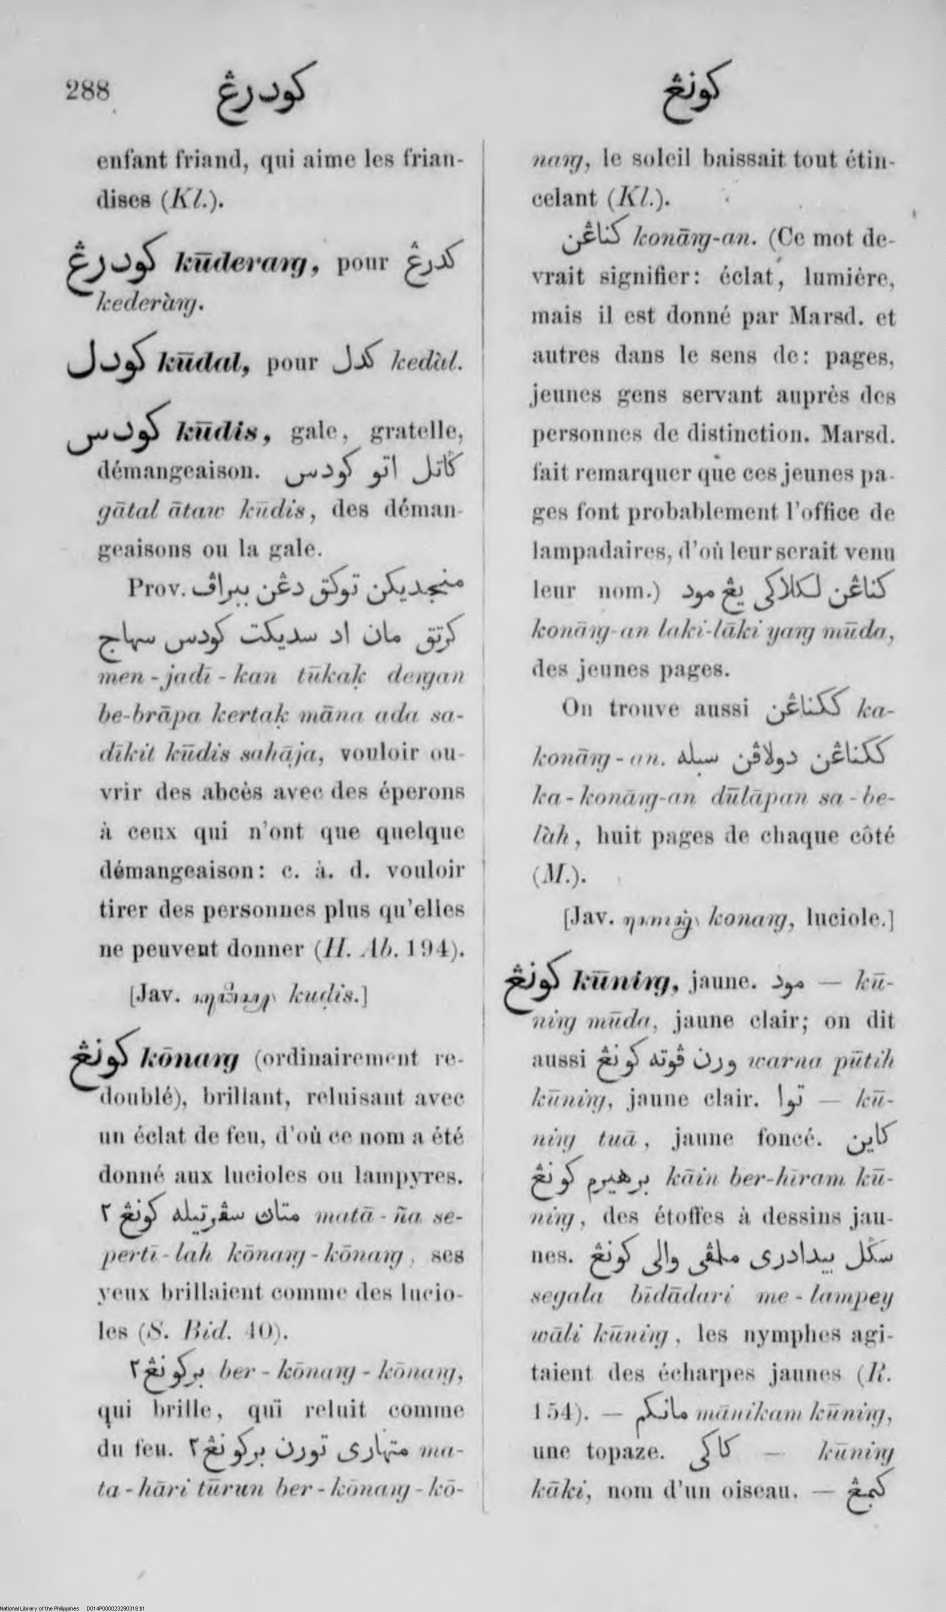 288 كودرڠ كونڠ
enfant friand, qui aime les frian-
dises (Kl.).
كودرڠ kūderaṅg, pour كدرڠ
kederàṅg.
كودل kūdal, pour كدل kedàl.
كودس kūdis, gale, gratelle,
démangeaison. ݢاتل اتو كودس
gātal ātaw kūdis, des déman-
geaisons ou la gale.
Prov. منجديكن توكق دڠن ببراڤ
كرتق مان اد سديكت كودس سهاج
men-jadī-kan tūkaḳ deṅgan
be-brāpa kertaḳ māna ada sa-
dīkit kūdis sahāja, vouloir ou-
vrir des abcès avec des éperons
à ceux qui n'ont que quelque
démangeaison: c. à. d. vouloir
tirer des personnes plus qu'elles
ne peuvent donner (H. Ab. 194).
[Jav. kuḍis.]
كونڠ kōnaṅg (ordinairement re-
doublé), brillant, reluisant avec
un éclat de feu, d'où ce nom a été
donné aux lucioles ou lampyres.
متاڽ سڤرتيله كونڠ ٢ matā-ña se-
pertī-lah kōnaṅg-kōnaṅg, ses
yeux brillaient comme des lucio-
les (S. Bid. 40).
بركونڠ ٢ ber-kōnaṅg-kōnaṅg,
qui brille, qui reluit comme
du feu. متهاري تورن بركونڠ ٢ ma-
ta-hāri tūrun ber-kōnaṅg-kō-
naṅg, le soleil baissait tout étin-
celant (Kl.).
كناڠن konāṅg-an. (Ce mot de-
vrait signifier: éclat, lumière,
mais il est donné par Marsd. et
autres dans le sens de: pages,
jeunes gens servant auprès des
personnes de distinction. Marsd.
fait remarquer que ces jeunes pa-
ges font probablement l'office de
lampadaires, d'où leur serait venu
leur nom.) كناڠن لكلاكي يڠ مود
konāṅg-an laki-lāki yaṅg mūda,
des jeunes pages.
On trouve aussi ككناڠن ka-
konāṅg-an. ككناڠن دولاڤن سبله
ka-konāṅg-an dūlāpan sa-be-
làh, huit pages de chaque côté
(M.).
[Jav. konaṅg, luciole.]
كونڠ kūniṅg, jaune. مود — kū-
niṅg mūda, jaune clair; on dit
aussi ورن ڤوته كونڠ warna pūtih
kūniṅg, jaune clair. توا — kū-
niṅg tuā, jaune foncé. كاين
برهيرم كونڠ kāin ber-hīram kū-
niṅg, des étoffes à dessins jau-
nes. سݢل بيدادري ملمڤي والي كونڠ
segala bīdādari me-lampey
wāli kūniṅg, les nymphes agi-
taient des écharpes jaunes (R.
154). — مانيكم mānikam kūniṅg,
une topaze. كاكي — kūniṅg
kāki, nom d'un oiseau. —